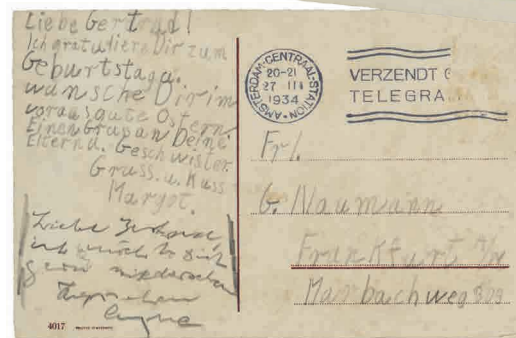 Liebe Gertrud!
Ich gratuliere Dir zum
Geburtstage.
wünsche Dir im
voraus gute Ostern.
Einen Gruss an Deine
Eltern u. Geschwister.
Gruss. u. Kuss
Margot.
Liebe
ich möchte dich
gern wiedersehen
AMSTERDAM-CENTRAAL-STATION
20-21
27 III
1934
VERZENDT
TELEGRA
Frl.
G. Naumann
Frankfurt a/M
Marbachweg 303
4017